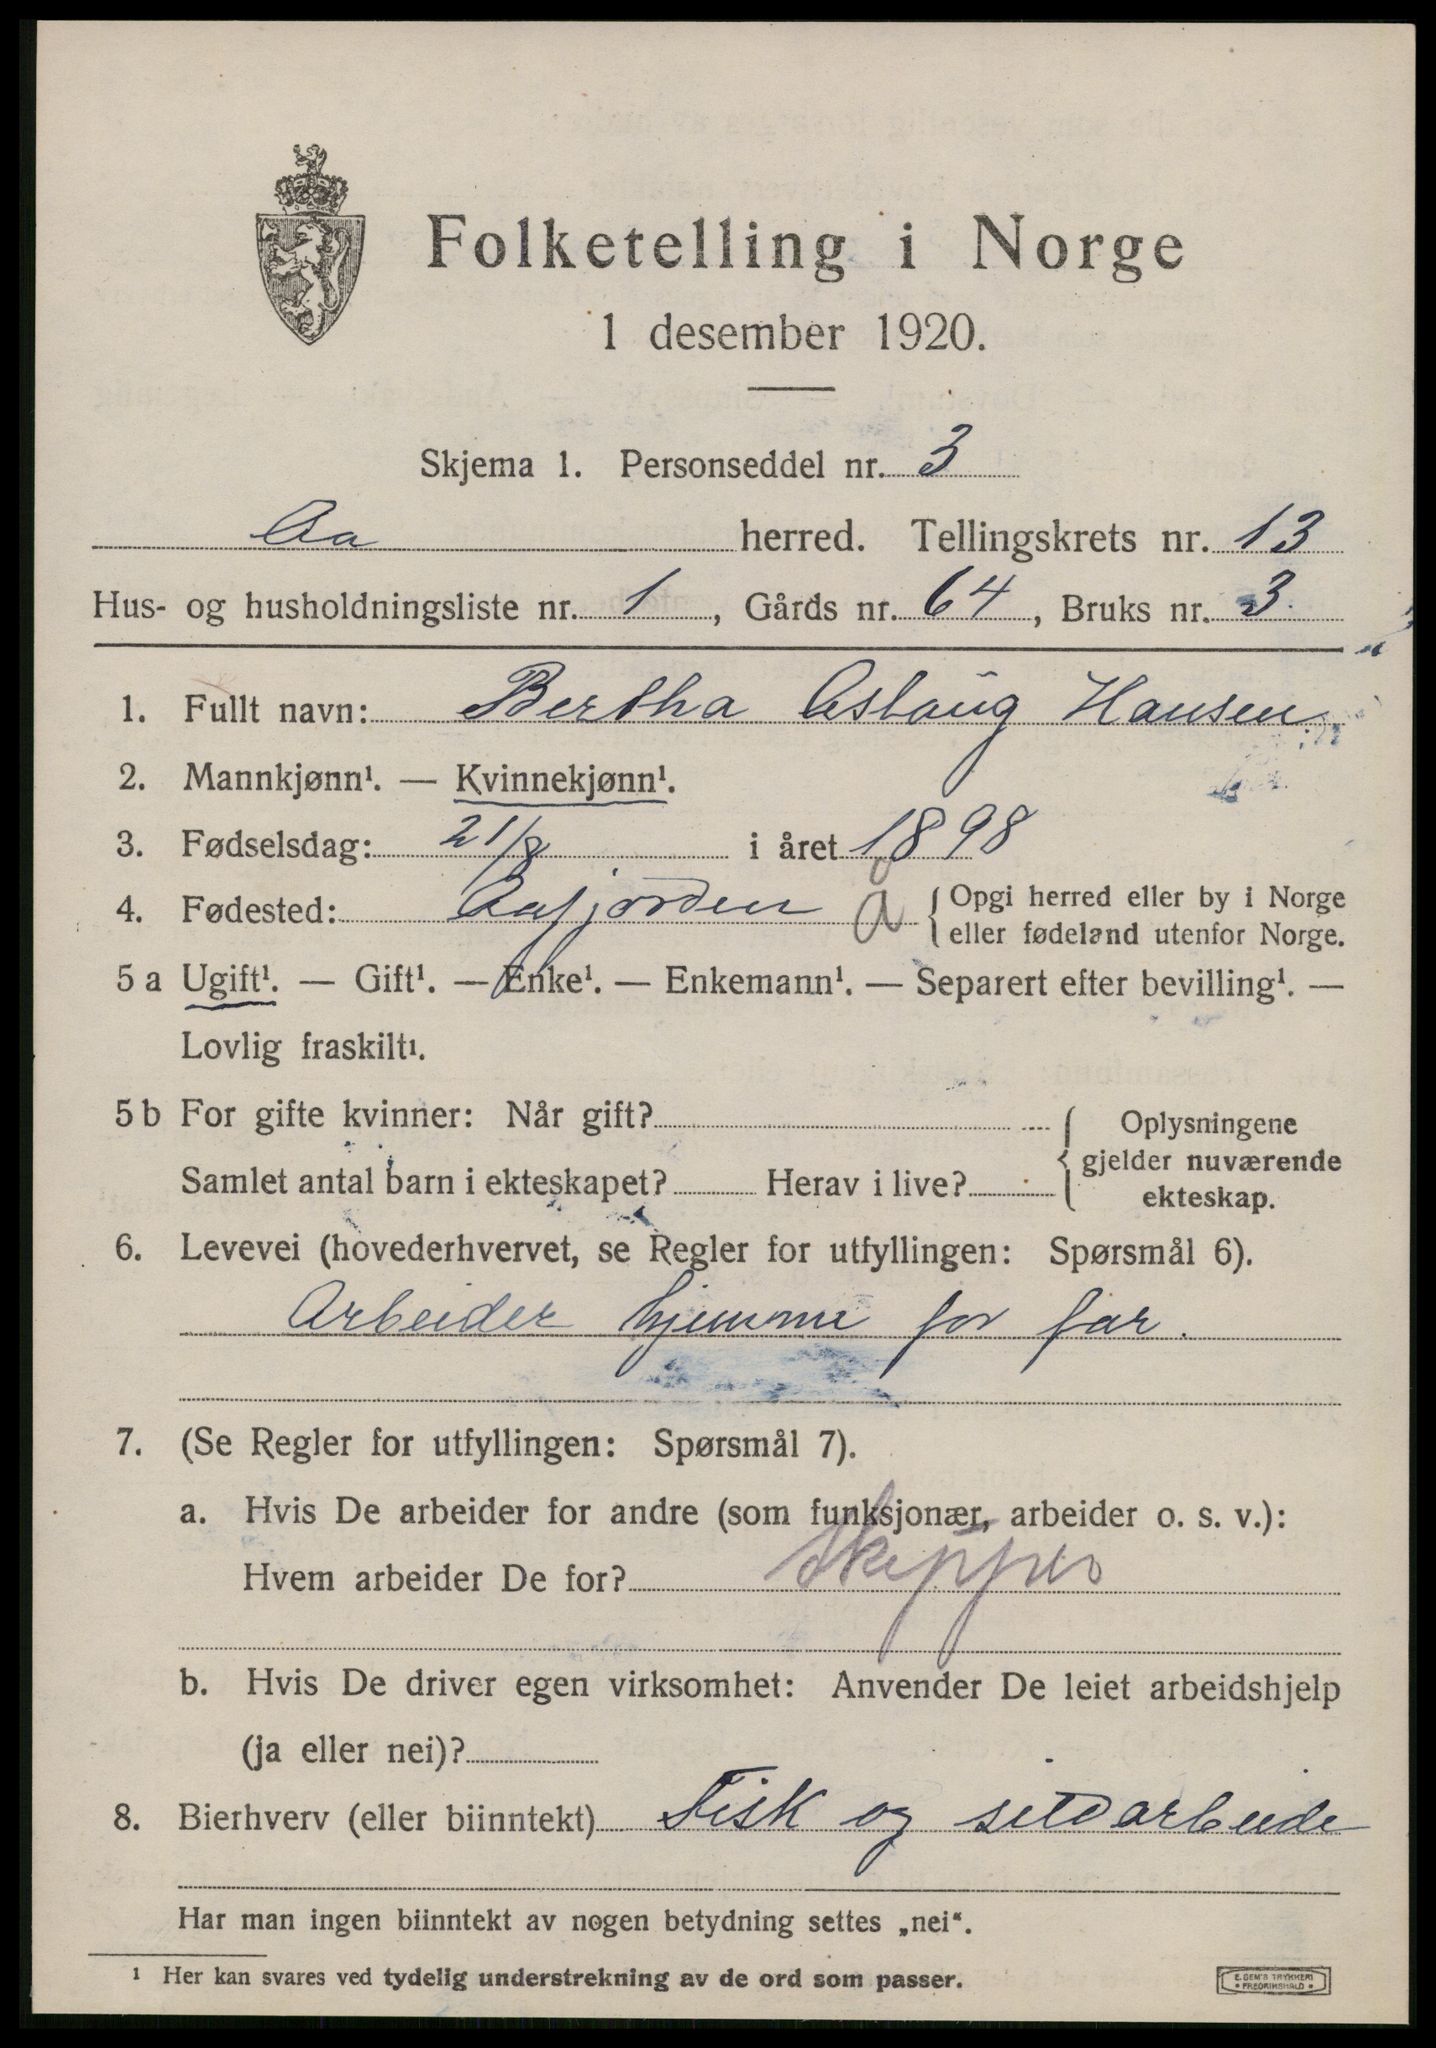 Folketelling i Norge
1 desember 1920.
Skjema 1. Personseddel nr. 3
Aa herred. Tellingskrets nr. 13
Hus- og husholdningsliste nr. 1, Gårds nr. 64, Bruks nr. 3
1. Fullt navn: Bertha Aslaug Hansen
2. Mannkjønn¹. — Kvinnekjønn¹.
3. Fødselsdag: 21/8 i året 1898
4. Fødested: Aafjorden Å { Opgi herred eller by i Norge
eller fødeland utenfor Norge.
5 a Ugift¹. — Gift¹. — Enke¹. — Enkemann¹. — Separert efter bevilling¹. —
Lovlig fraskilt¹.
5 b For gifte kvinner: Når gift? { Oplysningene
gjelder nuværende
Samlet antal barn i ekteskapet? Herav i live?
ekteskap.
6. Levevei (hovederhvervet, se Regler for utfyllingen: Spørsmål 6).
Arbeider hjemme for far.
7. (Se Regler for utfyllingen: Spørsmål 7).
a. Hvis De arbeider for andre (som funksjonær, arbeider o. s. v.):
Hvem arbeider De for? Skipper
b. Hvis De driver egen virksomhet: Anvender De leiet arbeidshjelp
(ja eller nei)?
8. Bierhverv (eller biinntekt) Fisk og sildarbeide
Har man ingen biinntekt av nogen betydning settes „nei“.
¹ Her kan svares ved tydelig understrekning av de ord som passer.
E. SEM'S TRYKKERI
FREDRIKSHALD